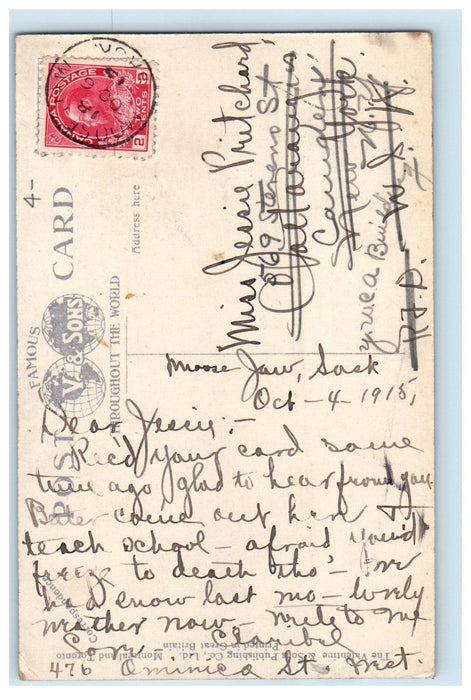 Moose Jaw, Sask
Oct - 4 - 1915,
Dear Jessie; -
Rec'd your card some
time ago glad to hear from you.
Better come out here &
teach school - afraid you'd
freeze to death tho' - We
had snow last mo - lovely
weather now. Write to me
476 Ominica St. West.
Miss Jessie Pritchard,
569 St
Camden
New York
U.S.A.
R.F.D.
FAMOUS
POST CARD
V. & SONS
THROUGHOUT THE WORLD
Address here
Correspondence
The Valentine & Sons Publishing Co. Ltd. Montreal and Toronto
Printed in Great Britain
CANADA POSTAGE
2 TWO CENTS 2
4-